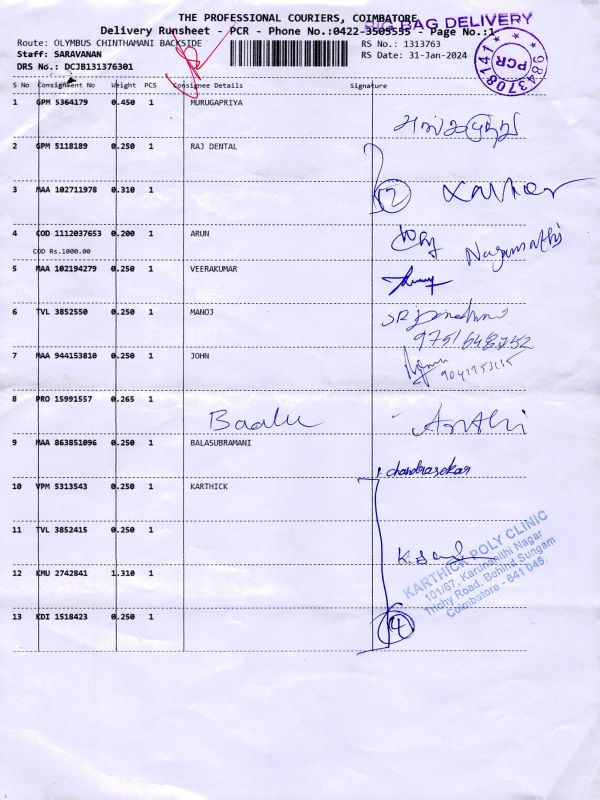 THE PROFESSIONAL COURIERS, COIMBATORE
BIG BAG DELIVERY
Delivery Runsheet - PCR - Phone No.:0422-3505555 - Page No.:1
Route: OLYMBUS CHINTHAMANI BACKSIDE
RS No.: 1313763
Staff: SARAVANAN
RS Date: 31-Jan-2024
DRS No.: DCJB131376301
PCR
9843708141
S No Consignment No Weight PCS Consignee Details Signature
1 GPM 5364179 0.450 1 MURUGAPRIYA
2 GPM 5118189 0.250 1 RAJ DENTAL
3 MAA 102711978 0.310 1
2
Xavier
4 COD 1112037653 0.200 1 ARUN
COD Rs.1000.00
5 MAA 102194279 0.250 1 VEERAKUMAR
6 TVL 3852550 0.250 1 MANOJ
7 MAA 944153810 0.250 1 JOHN
8 PRO 15991557 0.265 1
Baalu
9 MAA 863851096 0.250 1 BALASUBRAMANI
chandrasekar
10 VPM 5313543 0.250 1 KARTHICK
11 TVL 3852415 0.250 1
12 KMU 2742841 1.310 1
13 KDI 1518423 0.250 1
KARTHICK POLY CLINIC
101/67, Karunanithi Nagar
Trichy Road, Behind Sungam
Coimbatore - 641 045.
4